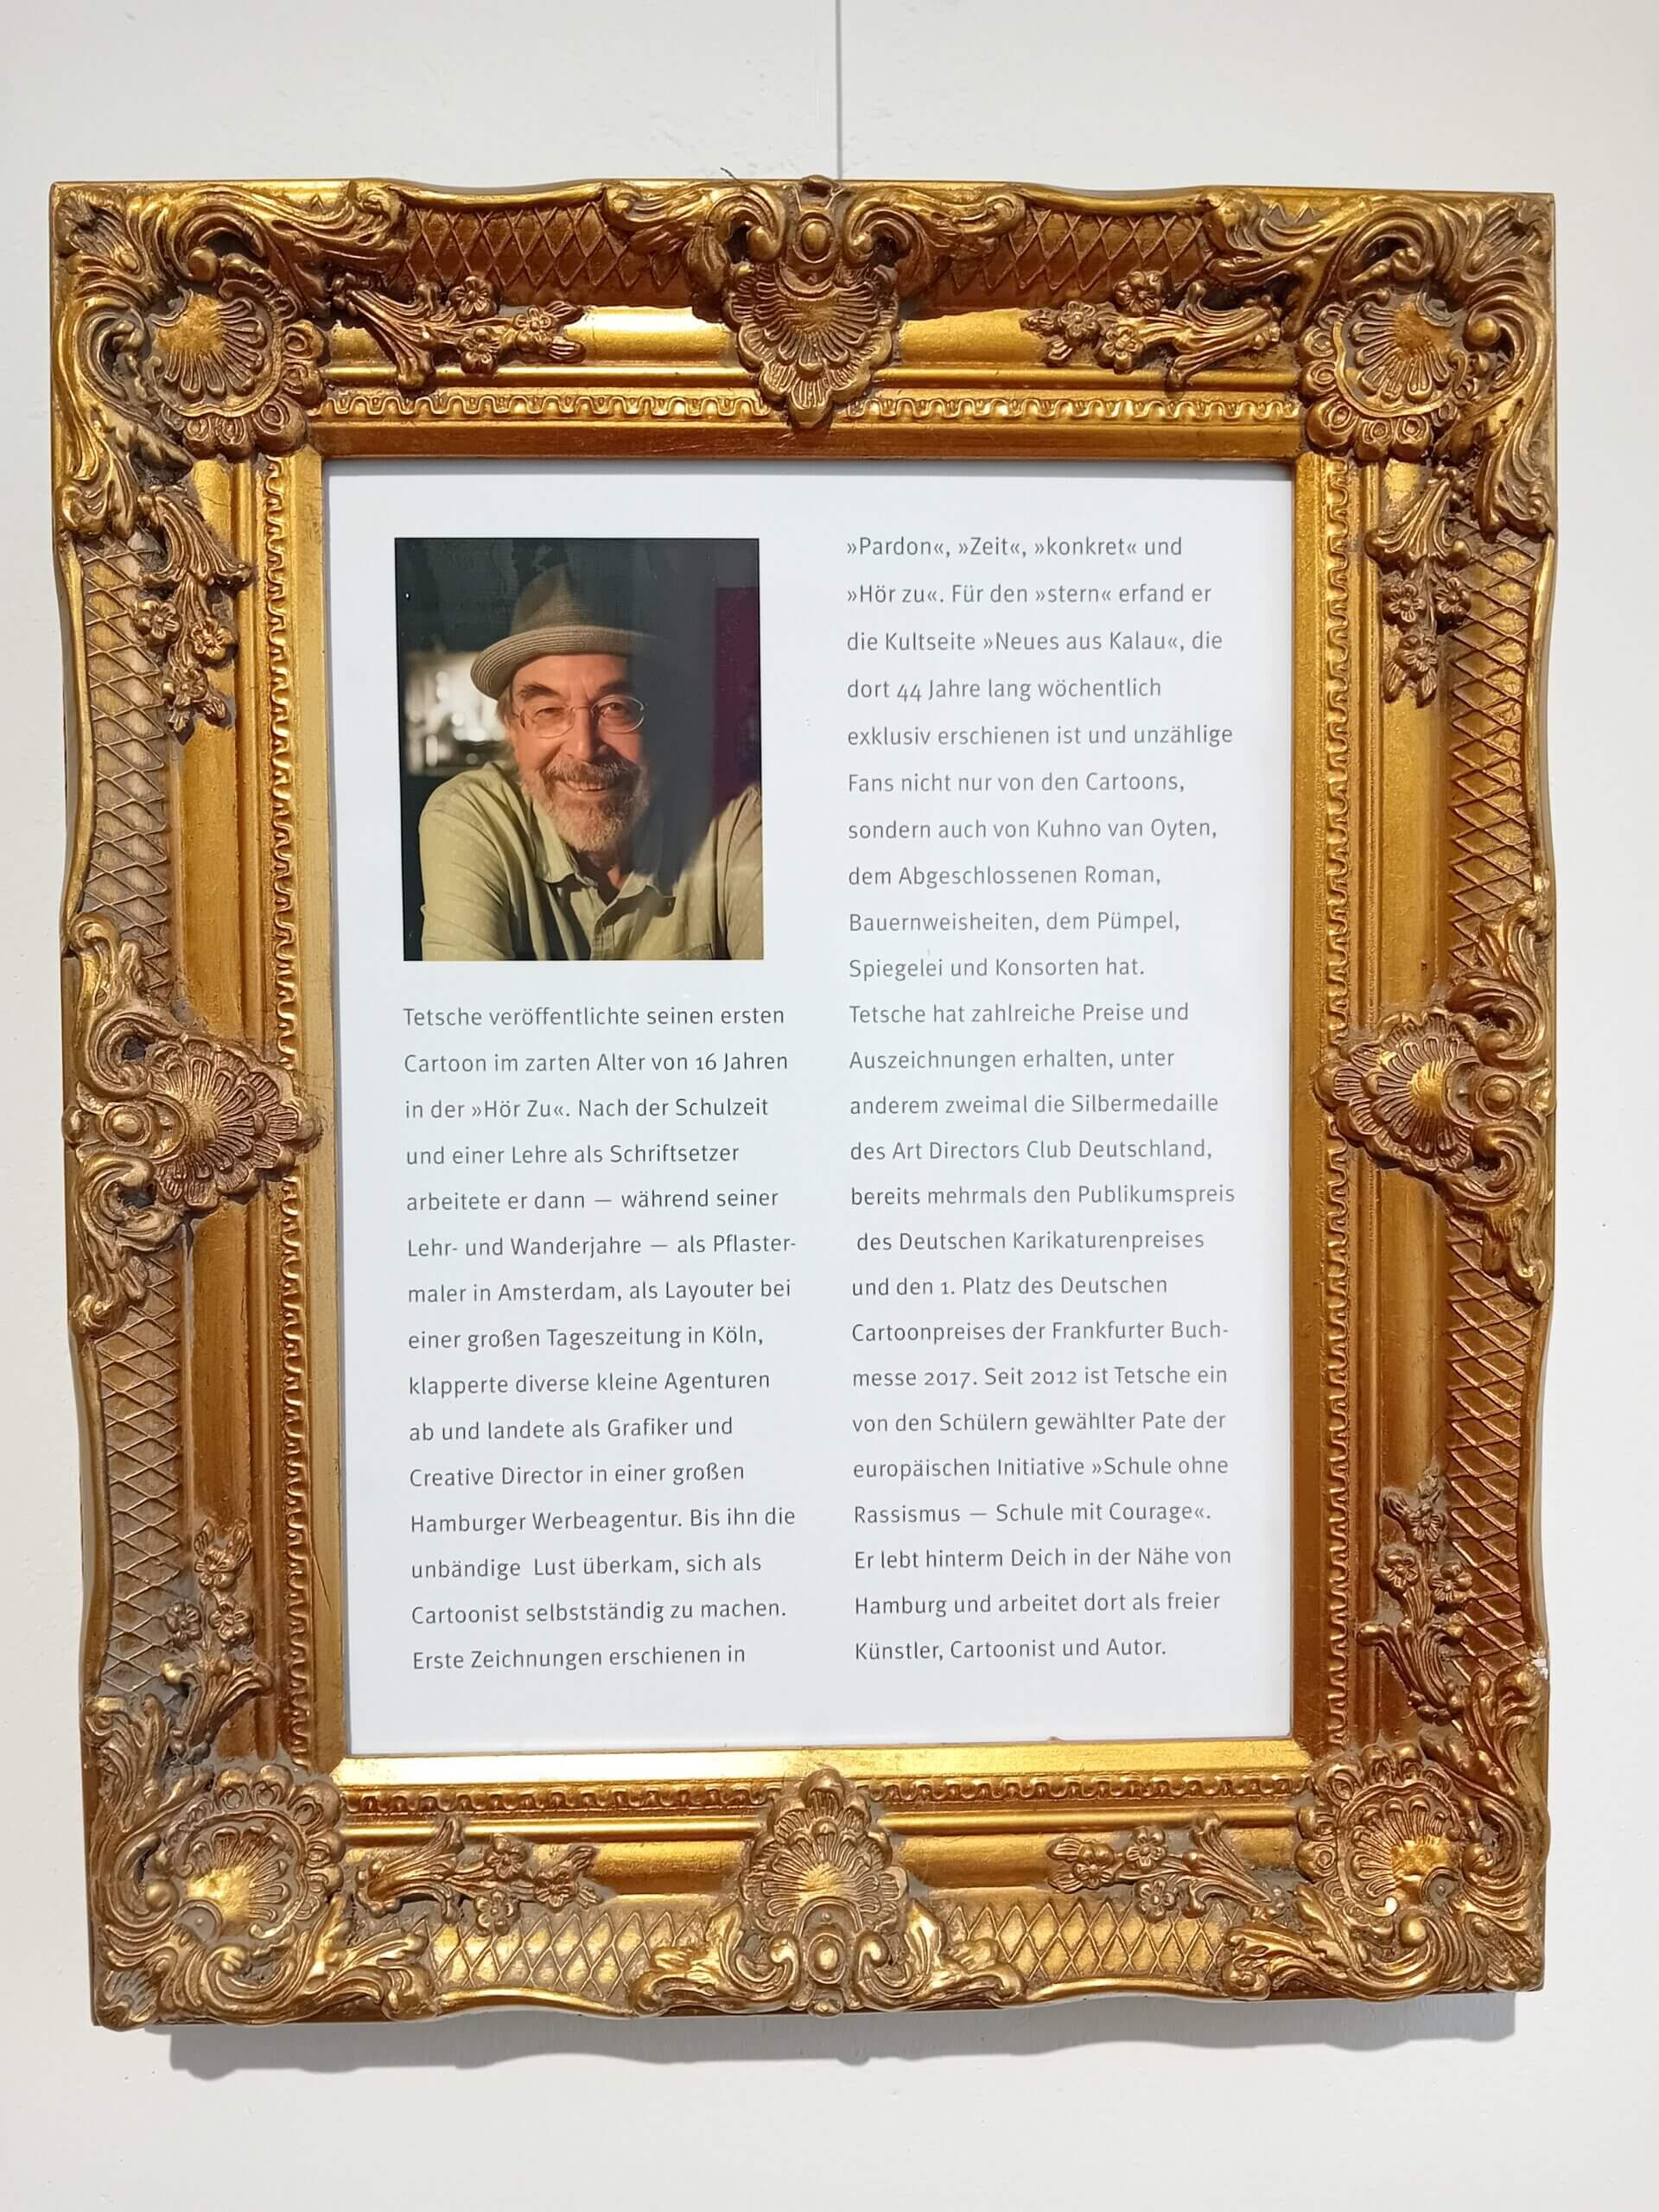 Tetsche veröffentlichte seinen ersten
Cartoon im zarten Alter von 16 Jahren
in der »Hör Zu«. Nach der Schulzeit
und einer Lehre als Schriftsetzer
arbeitete er dann — während seiner
Lehr- und Wanderjahre — als Pflaster-
maler in Amsterdam, als Layouter bei
einer großen Tageszeitung in Köln,
klapperte diverse kleine Agenturen
ab und landete als Grafiker und
Creative Director in einer großen
Hamburger Werbeagentur. Bis ihn die
unbändige Lust überkam, sich als
Cartoonist selbstständig zu machen.
Erste Zeichnungen erschienen in
»Pardon«, »Zeit«, »konkret« und
»Hör zu«. Für den »stern« erfand er
die Kultseite »Neues aus Kalau«, die
dort 44 Jahre lang wöchentlich
exklusiv erschienen ist und unzählige
Fans nicht nur von den Cartoons,
sondern auch von Kuhno van Oyten,
dem Abgeschlossenen Roman,
Bauernweisheiten, dem Pümpel,
Spiegelei und Konsorten hat.
Tetsche hat zahlreiche Preise und
Auszeichnungen erhalten, unter
anderem zweimal die Silbermedaille
des Art Directors Club Deutschland,
bereits mehrmals den Publikumspreis
des Deutschen Karikaturenpreises
und den 1. Platz des Deutschen
Cartoonpreises der Frankfurter Buch-
messe 2017. Seit 2012 ist Tetsche ein
von den Schülern gewählter Pate der
europäischen Initiative »Schule ohne
Rassismus — Schule mit Courage«.
Er lebt hinterm Deich in der Nähe von
Hamburg und arbeitet dort als freier
Künstler, Cartoonist und Autor.